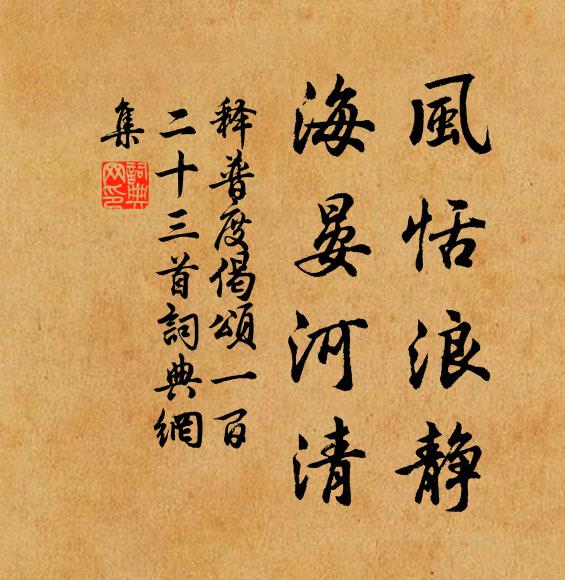 風恬浪静
海晏河清
释普度偈頌一百
二十三首詞典網
集
詞典
网印